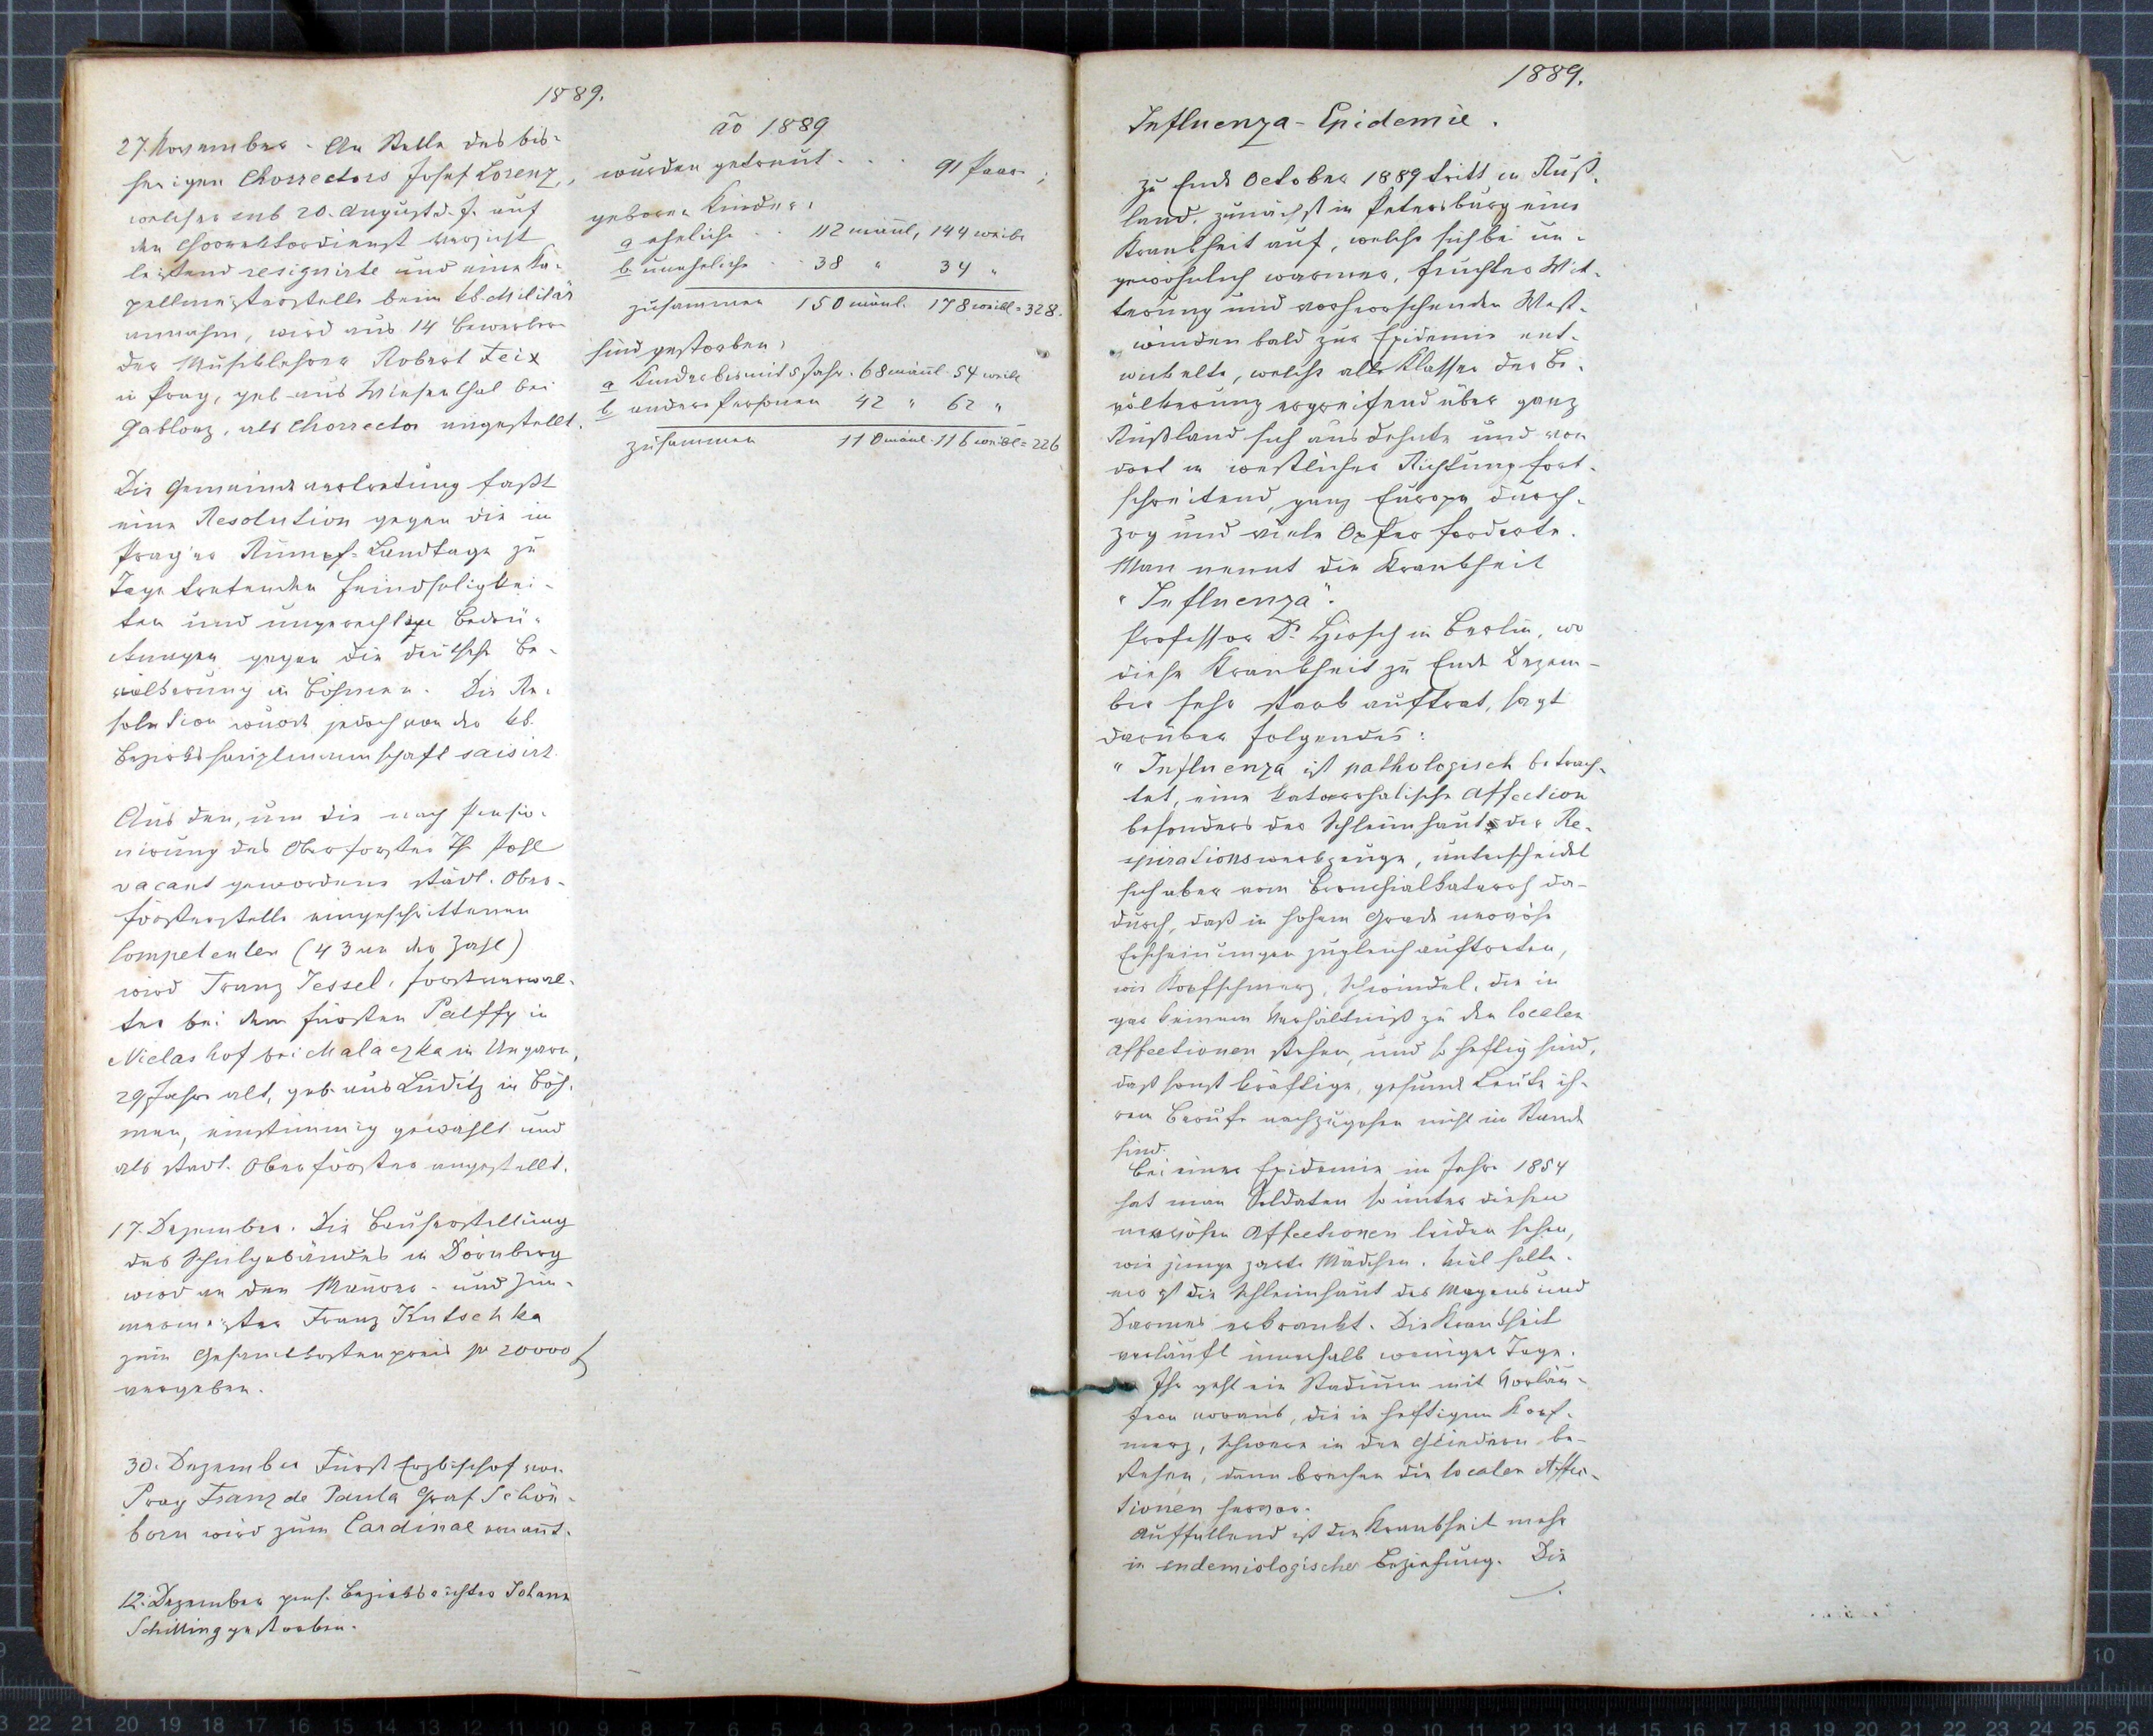 1889.
27. November. An Stelle des bis-
herigen Chorrectors Josef Lorenz,
welcher sub 20. August d. J. auf
den Chorrektordienst verzicht
leistend resignirte und eine Ka-
pellmeisterstelle beim kk. Militär
annahm, wird aus 14 Bewerbern
der Musiklehrer Robert Feix
in Prag, geb. aus Wiesenthal bei
Gablonz, als Chorrector angestellt.
Die Gemeindevertretung faßt
eine Resolution gegen die im
Prager Rumpf-Landtage zu
Tage tretenden Feindseligkei-
ten und ungerechte Bedrü-
ckungen gegen die deutsche Be-
völkerung in Böhmen. Die Re-
solution wurde jedoch von der kk.
Bezirkshauptmannschaft saisirt.
Aus den, um die nach Pensio-
nirung des Oberförster Th. Pohl
vacant gewordene städt. Ober-
försterstelle eingeschrittenen
Competenten (43 an der Zahl)
wird Franz Jessel, Forstverwal-
ter bei dem Fürsten Palffy in
Niclashof bei Malaczka in Ungarn,
29 Jahre alt, geb. aus Luditz in Böh-
men, einstimmig gewählt und
als städt. Oberförster angestellt.
17. Dezember. Die Bauherstellung
des Schulgebäudes in Dörnberg
wird an den Maurer- und Zim-
mermeister Franz Kutschka
zum Gesamtkostenpreis pr 20000 f
vergeben.
30. Dezember Fürst Erzbischof von
Prag Franz de Paula Graf Schön-
born wird zum Cardinal ernannt.
12. Dezember pens. Bezirksrichter Johann
Schilling gestorben.
ao 1889
wurden getraut . . . 91 Paar;
geboren Kinder:
a eheliche . . 112 männl, 144 weibl
b uneheliche . . 38 " 34 "
zusammen 150 männl. 178 weibl = 328.
sind gestorben:
a Kinder bis mit 5 Jahr. 68 männl. 54 weibl
b andere Personen 42 " 62 "
zusammen 110 männl. 116 weibl = 226
1889.
Influenza-Epidemie.
Zu Ende October 1889 tritt in Ruß-
land, zunächst in Petersburg eine
Krankheit auf, welche sich bei un-
gewöhnlich warmer, feuchter Wit-
terung und vorherrschenden West-
winden bald zur Epidemie ent-
wickelte, welche alle Klassen der Be-
völkerung ergreifend über ganz
Rußland sich ausdehnte und von
dort in westlicher Richtung fort-
schreitend, ganz Europa durch-
zog und viele Opfer forderte.
Man nennt die Krankheit
"Influenza".
Professor Dr. Hirsch in Berlin, wo
diese Krankheit zu Ende Dezem-
ber sehr stark auftrat, sagt
darüber folgendes:
"Influenza ist pathologisch betrach-
tet, eine katarrhalische Affection
besonders der Schleimhaut der Re-
spirationswerkzeuge, unterscheidet
sich aber vom Bronchialkatarrh da-
durch, daß in hohem Grade nervöse
Erscheinungen zugleich auftreten,
wie Kopfschmerz, Schwindel, die in
gar keinem Verhältniß zu den localen
Affectionen stehen, und so heftig sind,
daß sonst kräftige, gesunde Leute ih-
ren Berufe nachzugehen nicht im Stande
sind.
Bei einer Epidemie im Jahre 1854
hat man Soldaten so unter diesen
nervösen Affectionen leiden sehen,
wie junge zarte Mädchen. Viel selte-
ner ist die Schleimhaut des Magens und
Darmes erkrankt. Die Krankheit
verläuft innerhalb weniger Tage.
Ihr geht ein Stadium mit Vorläu-
fern voraus, die in heftigem Kopf-
merz, Schwere in den Gliedern be-
stehen, dann brechen die localen Affec-
tionen hervor.
Auffallend ist die Krankheit mehr
in endemiologischer Beziehung. Die